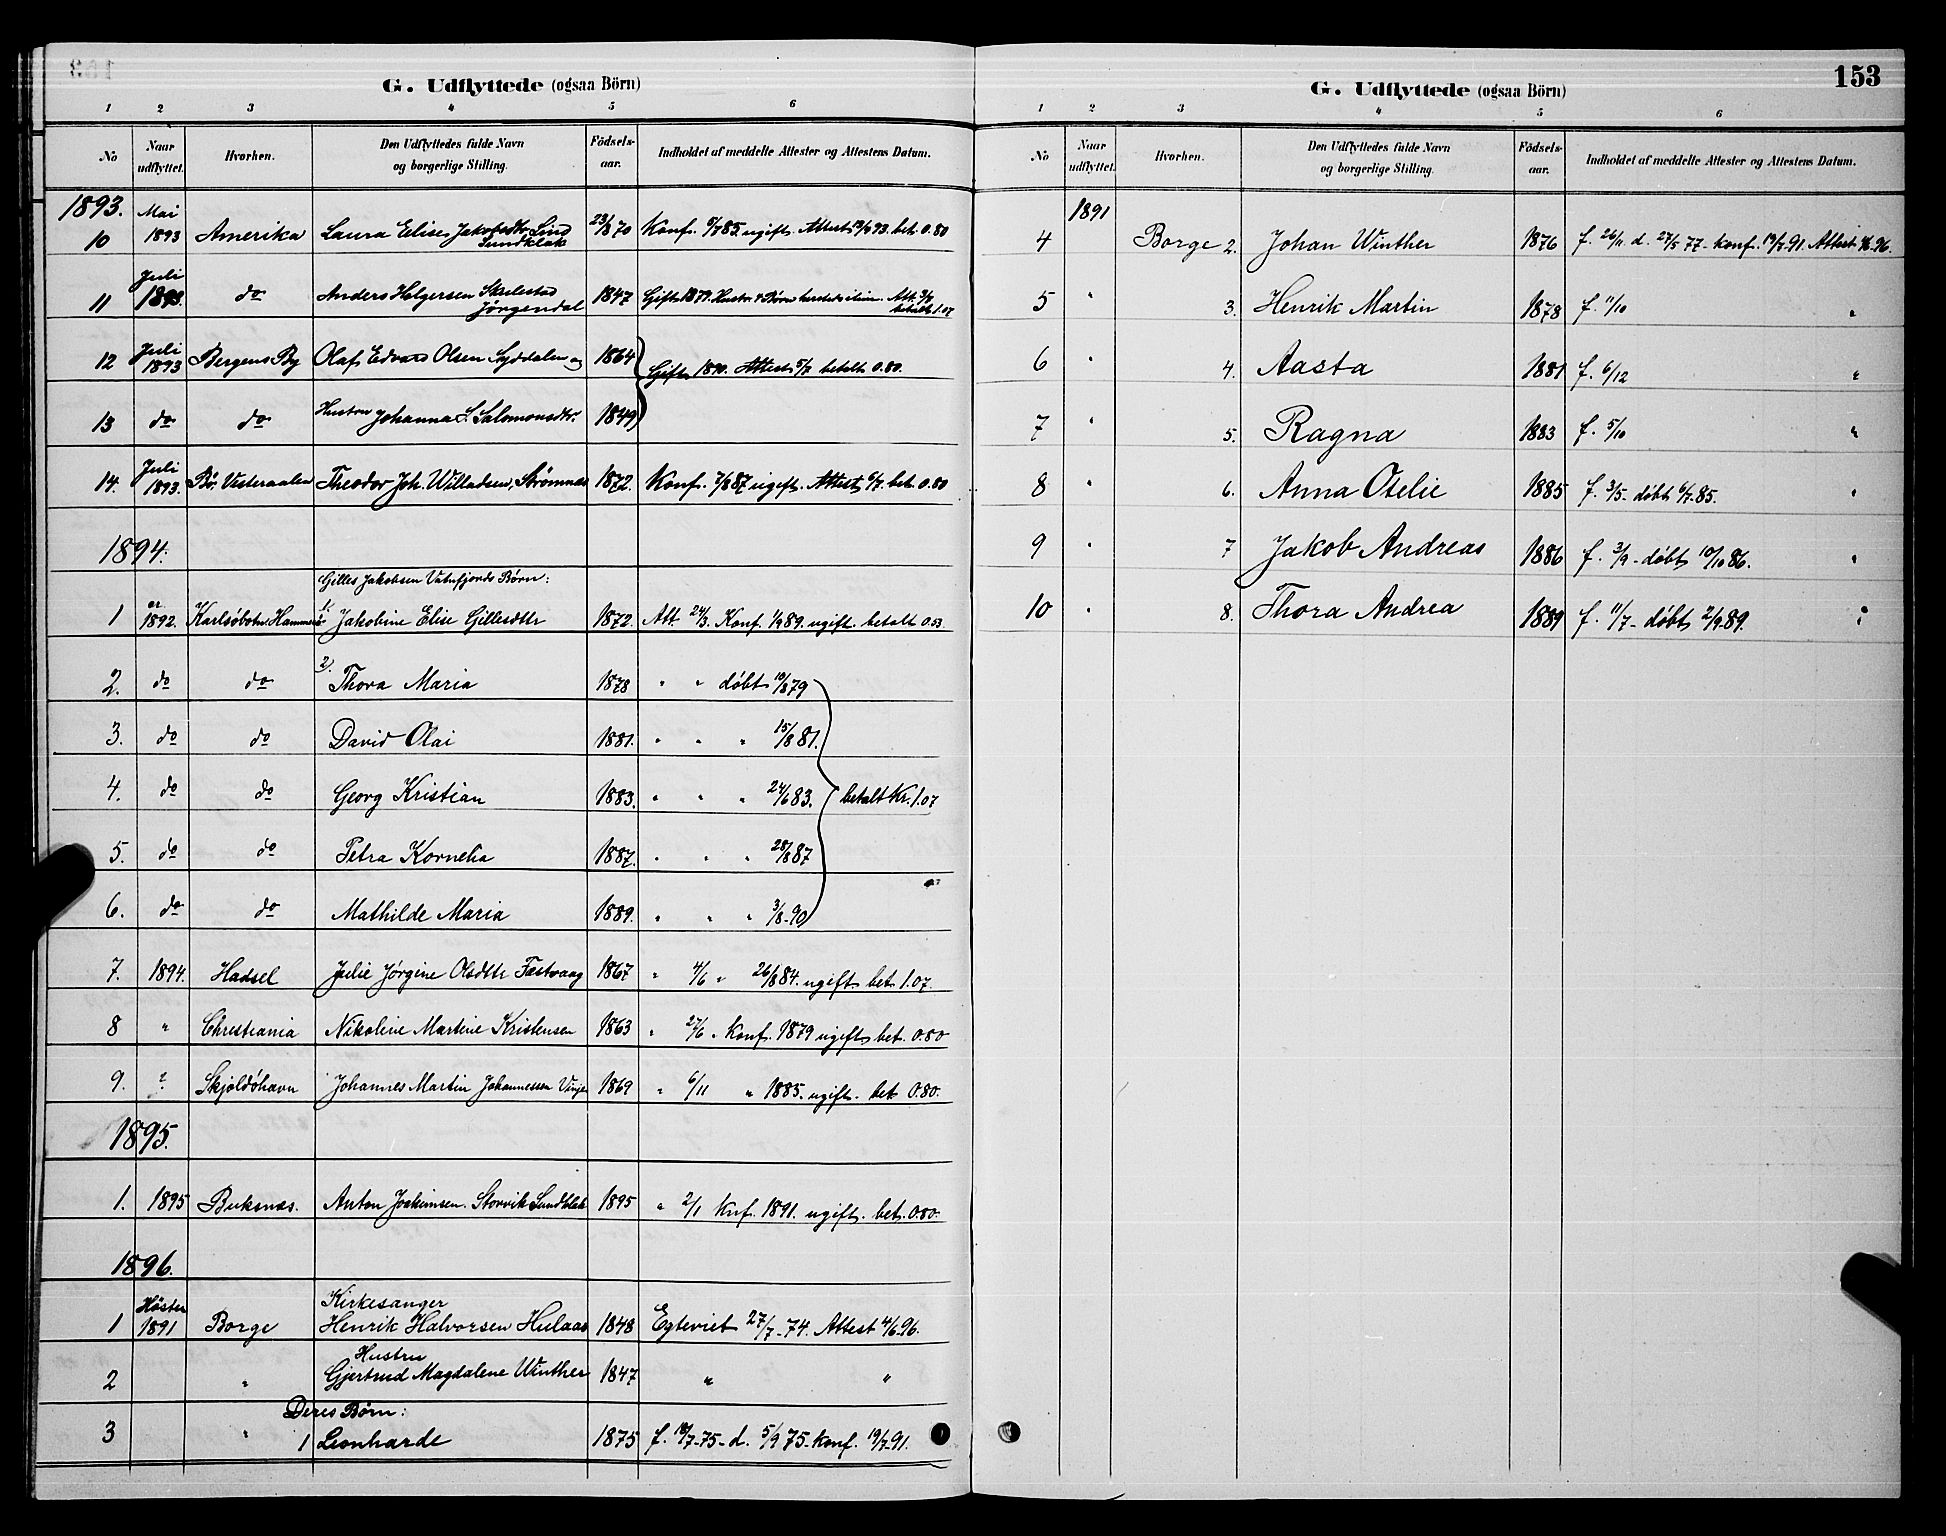 G. Udflyttede (ogsaa Börn)
1 2 3 4 5 6
No Naar udflyttet. Hvorhen. Den Udflyttedes fulde Navn og borgerlige Stilling. Födsels-aar. Indholdet af meddelte Attester og Attestens Datum.
1893.
10 Mai 1893 Amerika Laura Elise Jakobsdtr. Lind Sundklak 23/8 70 Konf. 85. ugift. Attest 93. bet. 0.80
11 Juli 1893 do Anders Holgersen Skulestad Jörgendal 1847 Gift 1879. Hustru & Börn Att. betalt 1.07
12 Juli 1893 Bergens By Olaf Edvard Olsen Syddalen og 1864 Gift 1890. Attest 5/7 betalt 0.80.
13 do do Hustru Johanna S. Salomonsdtr. 1849
14. Juli 1893. Bö. Vesteraalen Theodor Joh. Willadsen, Strømnes 1872. Konf. 7/8 87 ugift. Attest 6/7. bet. 0.80
1894.
Gilles Jakobsen Vatnfjords Børn:
1 1892. Karlsöbotn Hammerö 1. Jakobine Elise Gillesdtr 1872. Att. 24/3. Konf. 1/9 89. ugift. betalt 0.53
2. do do 2). Thora Maria 1878 " " døbt 10/8 79
3. do do David Olai 1881. " " " 15/8 81.
4. do do Georg Kristian 1883. " " " 24/6 83. betalt Kr. 1.07
5. do do Petra Kornelia 1887. " " " 28/8 87
6. do do Mathilde Maria 1889. " " " 3/8-90
7. 1894. Hadsel Julie Jörgine Olsdtr Festvaag 1867 " 4/6 " 26/8 84. ugift bet 1.07.
8 " Christiania Nikoline Martine Kristensen 1863 " 27/6 " Konf. 1879 ugift bet. 0.80
9. ? Skjoldöhavn Johannes Martin Johannessen Vinje 1869 " 6/11 " 1885. ugift. bet 0.80.
1895.
1. 1895 Buksnæs. Anton Joakimsen. Storvik Sundklak 1895 " 2/1 Knf. 1891. ugift. bet. 0.80.
1896.
1 Høsten 1891 Borge Kirkesanger Henrik Halvorsen Hulaas 1848 Egteviet 27/7-74. Attest 4/6-96.
2 " Hustru Gjertrud Magdalene Winther 1847 " "
Deres Børn:
3 " 1 Leonharde 1875 f. 18/7-75-d. 5/9 75-konf. 19/7-91.
153
G. Udflyttede (ogsaa Börn)
1 2 3 4 5 6
No Naar udflyttet. Hvorhen. Den Udflyttedes fulde Navn og borgerlige Stilling. Födsels-aar. Indholdet af meddelte Attester og Attestens Datum.
1891
4 Borge 2. Johan Winther 1876 f. 26/11 d. 27/5 77. konf. 19/7-91. Attest 4/6-96.
5 " 3. Henrik Martin 1878 f. 11/10 "
6 " 4. Aasta 1881 f. 6/12 "
7 " 5. Ragna 1883 f. 5/10 "
8 " 6. Anna Otelie 1885 f. 3/5- døbt 6/7-85. "
9 " 7 Jakob Andreas 1886 f. 3/9-døbt 10/10 86. "
10 " 8. Thora Andrea 1889 f. 11/7- døbt 2/9-89. "